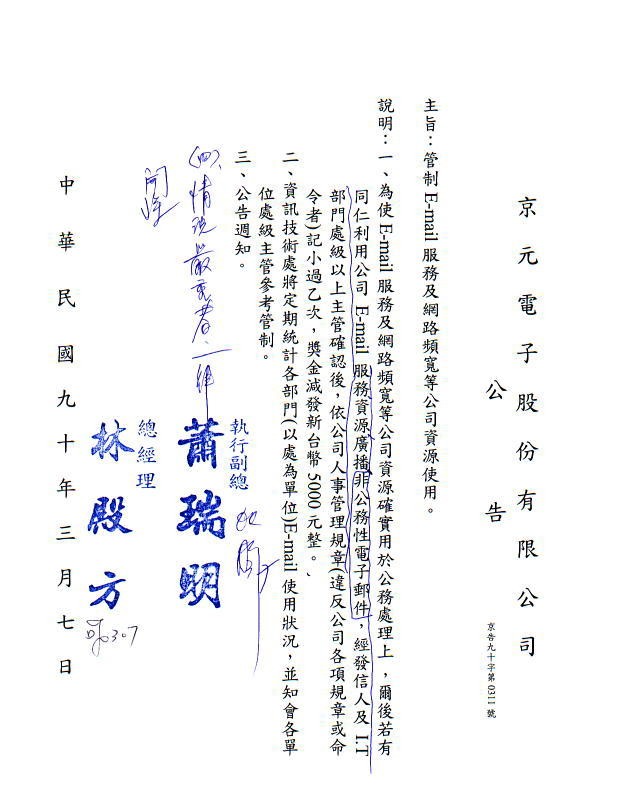 京元電子股份有限公司
公告
京告九十字第0311號
主旨：管制E-mail服務及網路頻寬等公司資源使用。
說明：一、為使E-mail服務及網路頻寬等公司資源確實用於公務處理上，爾後若有
同仁利用公司E-mail服務資源廣播非公務性電子郵件，經發信人及I.T
部門處級以上主管確認後，依公司人事管理規章(違反公司各項規章或命
令者)記小過乙次，獎金減發新台幣5000元整。
二、資訊技術處將定期統計各部門(以處為單位)E-mail使用狀況，並知會各單
位處級主管參考管制。
三、公告週知。
(四)、情況嚴重者、一律
開除
執行副總
蕭瑞明
總經理
林殿方
0307
中華民國九十年三月七日